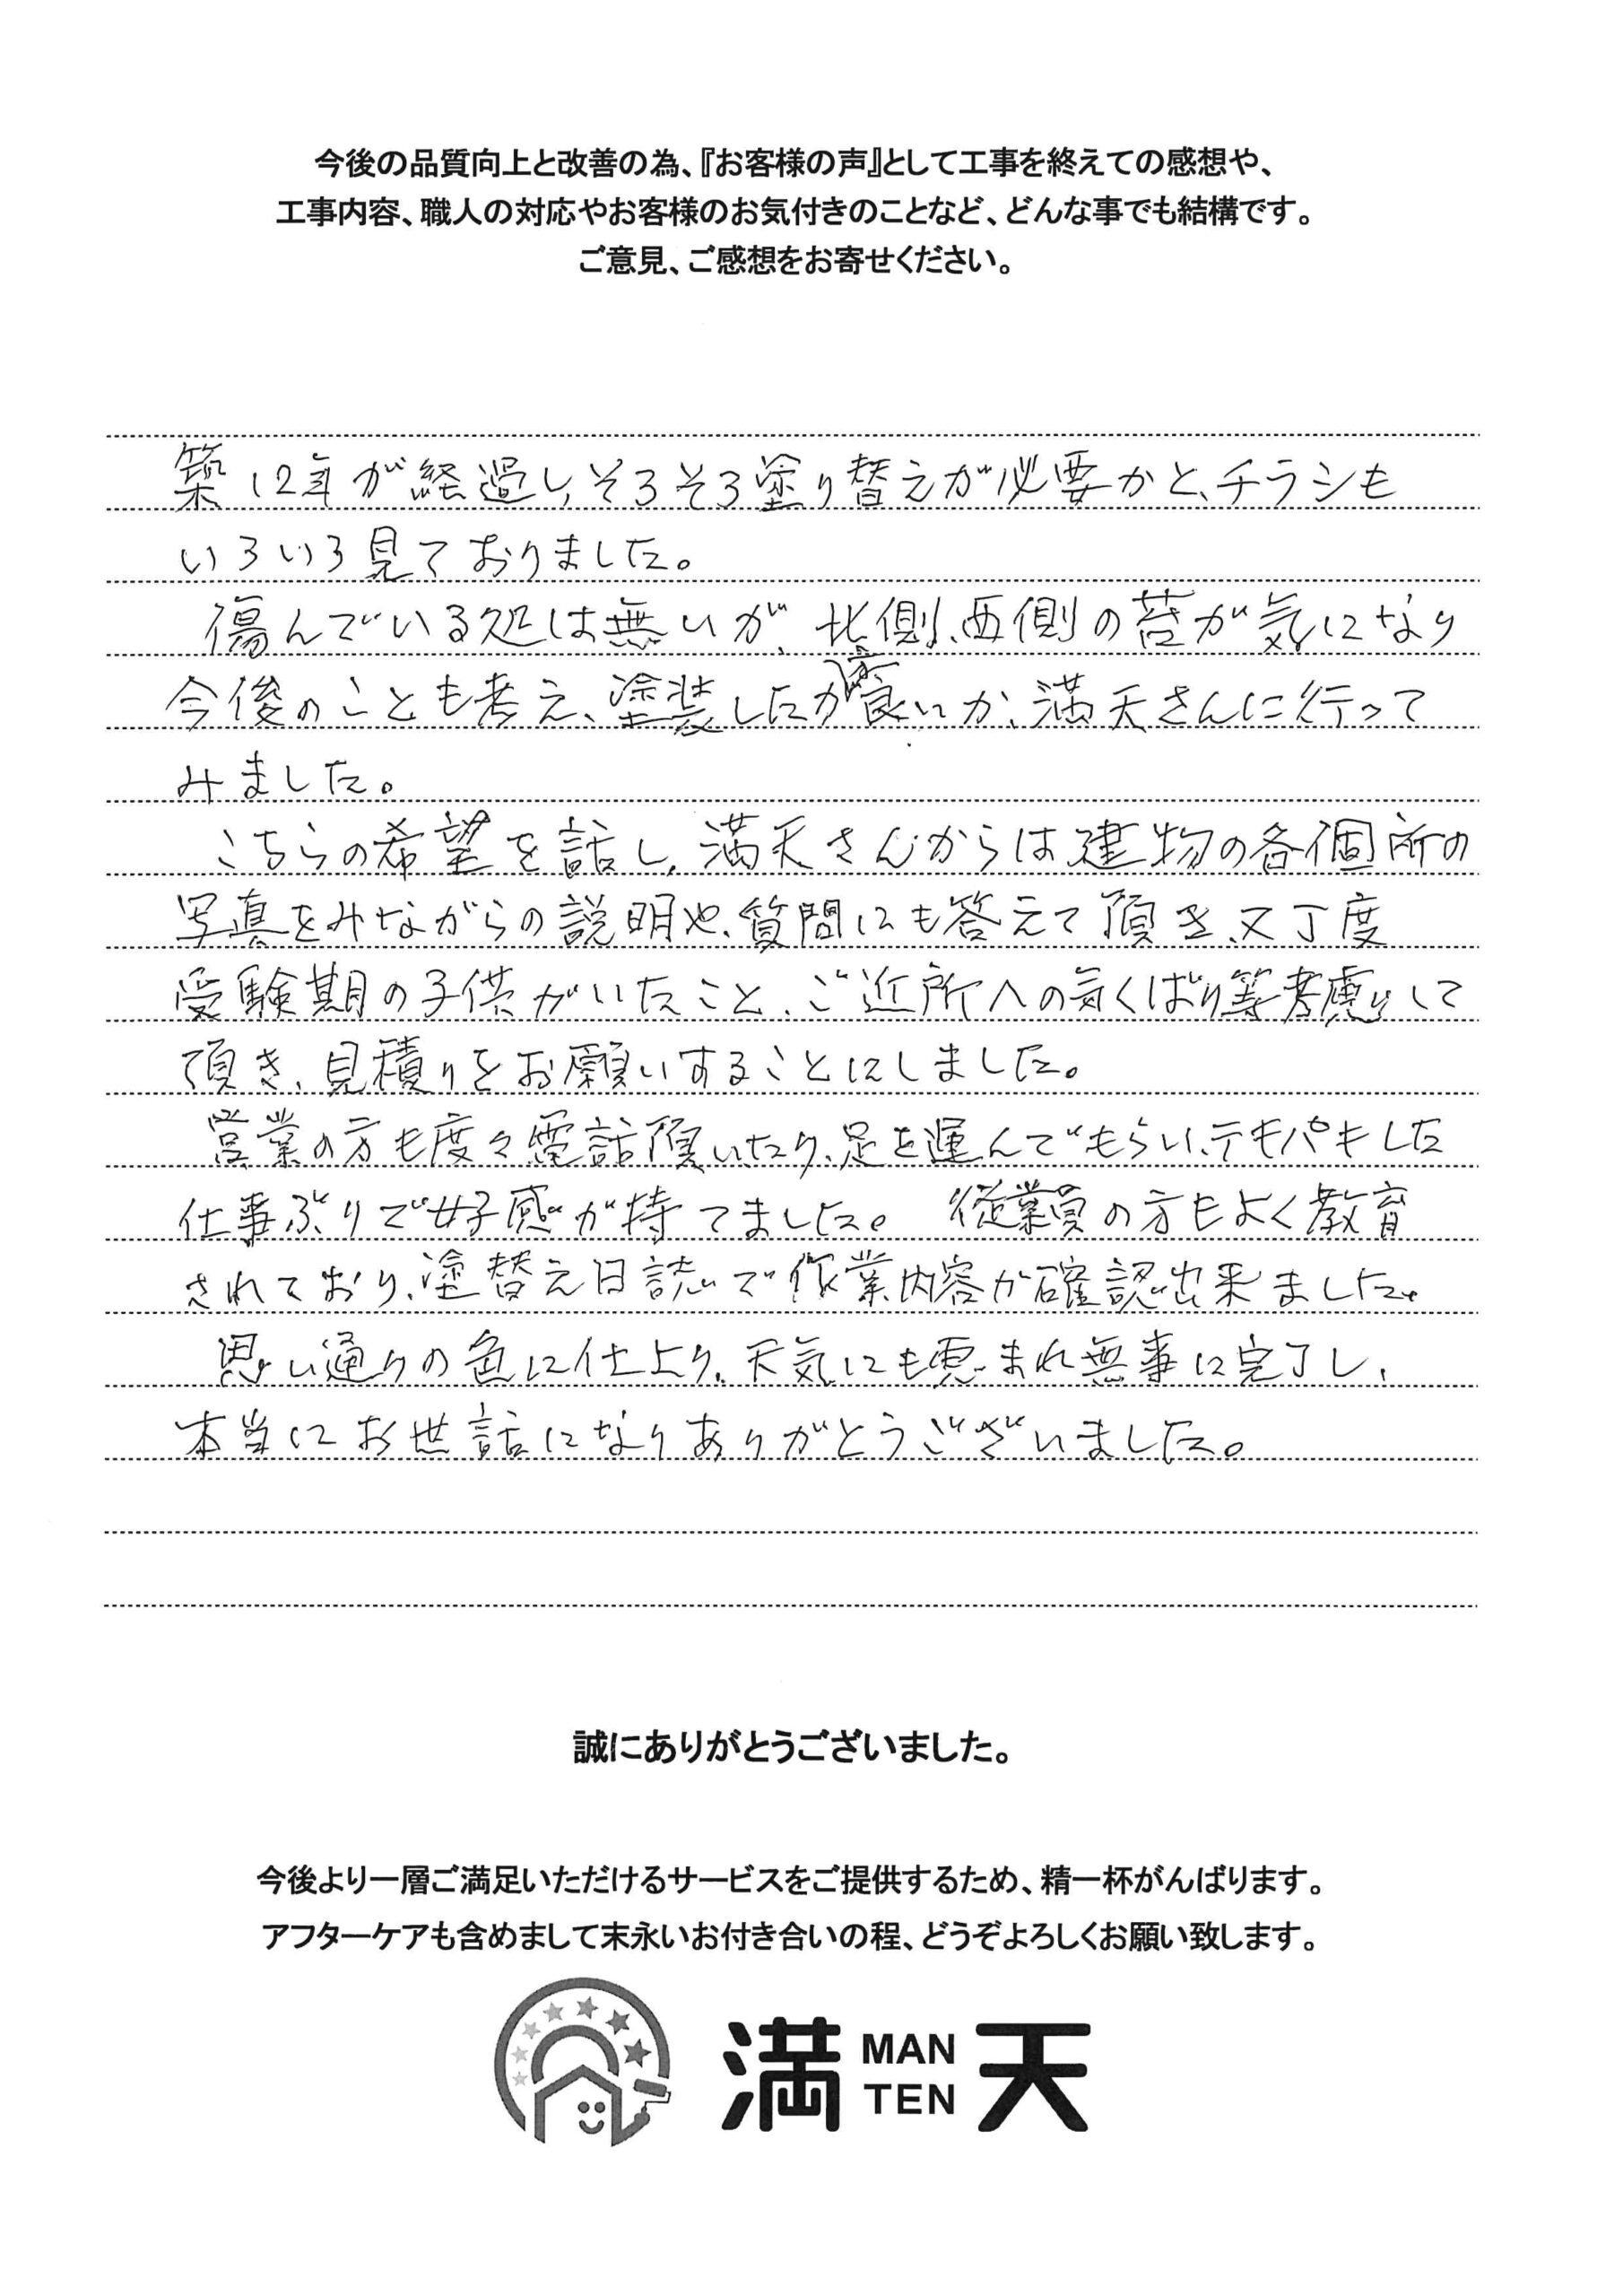 今後の品質向上と改善の為、『お客様の声』として工事を終えての感想や、
工事内容、職人の対応やお客様のお気付きのことなど、どんな事でも結構です。
ご意見、ご感想をお寄せください。
築12年が経過し、そろそろ塗り替えが必要かと、チラシも
いろいろ見ておりました。
傷んでいる処は無いが、北側、西側の苔が気になり
今後のことも考え、塗装したが良いか、満天さんに行って
みました。
こちらの希望を話し、満天さんからは建物の各個所の
写真をみながらの説明や、質問にも答えて頂き、又丁度
受験期の子供がいたこと、ご近所への気くばり等考慮して
頂き、見積りをお願いすることにしました。
営業の方も度々電話頂いたり、足を運んでもらい、テキパキした
仕事ぶりで好感が持てました。 従業員の方もよく教育
されており、塗替え日誌で作業内容が確認出来ました。
思い通りの色に仕上り、天気にも恵まれ無事に完了し、
本当にお世話になりありがとうございました。
誠にありがとうございました。
今後より一層ご満足いただけるサービスをご提供するため、精一杯がんばります。
アフターケアも含めまして末永いお付き合いの程、どうぞよろしくお願い致します。
満 MAN TEN 天